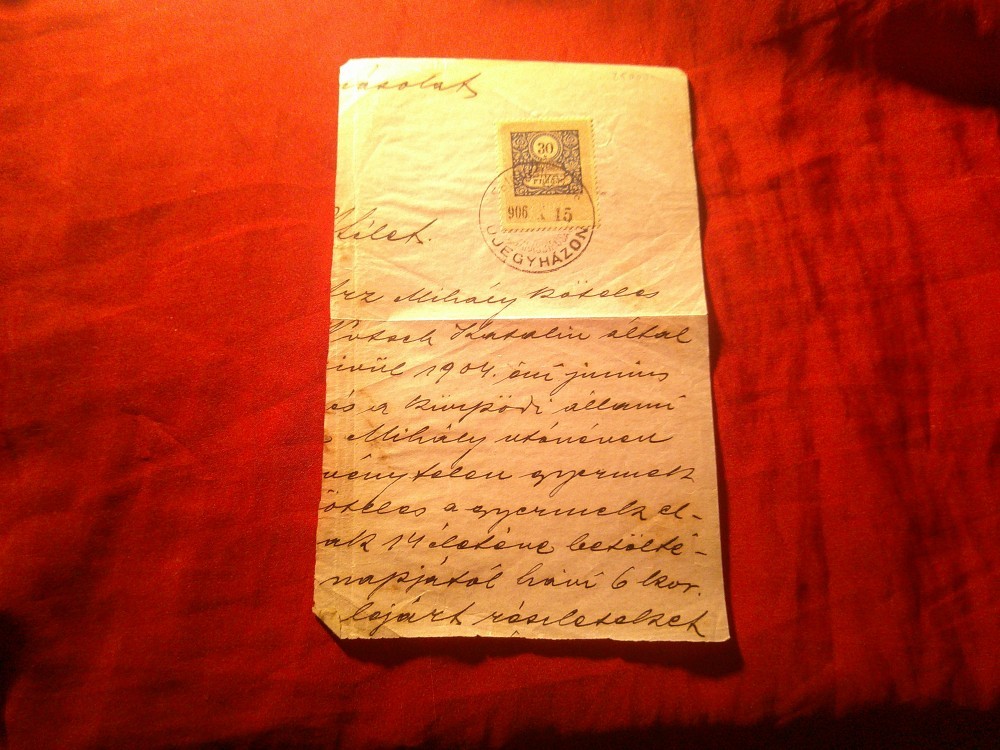 másolat
30
FILLÉR
906 X 15
ÚJEGYHÁZON
Itélet.
Mihály köteles
Katalin által
ivül 1904. évi junius
és a kürpödi állami
Mihály utónéven
vénytelen gyermek
öteles a gyermek el-
ak 14 életéve betölté-
napjától havi 6 kor.
lejárt részleteket